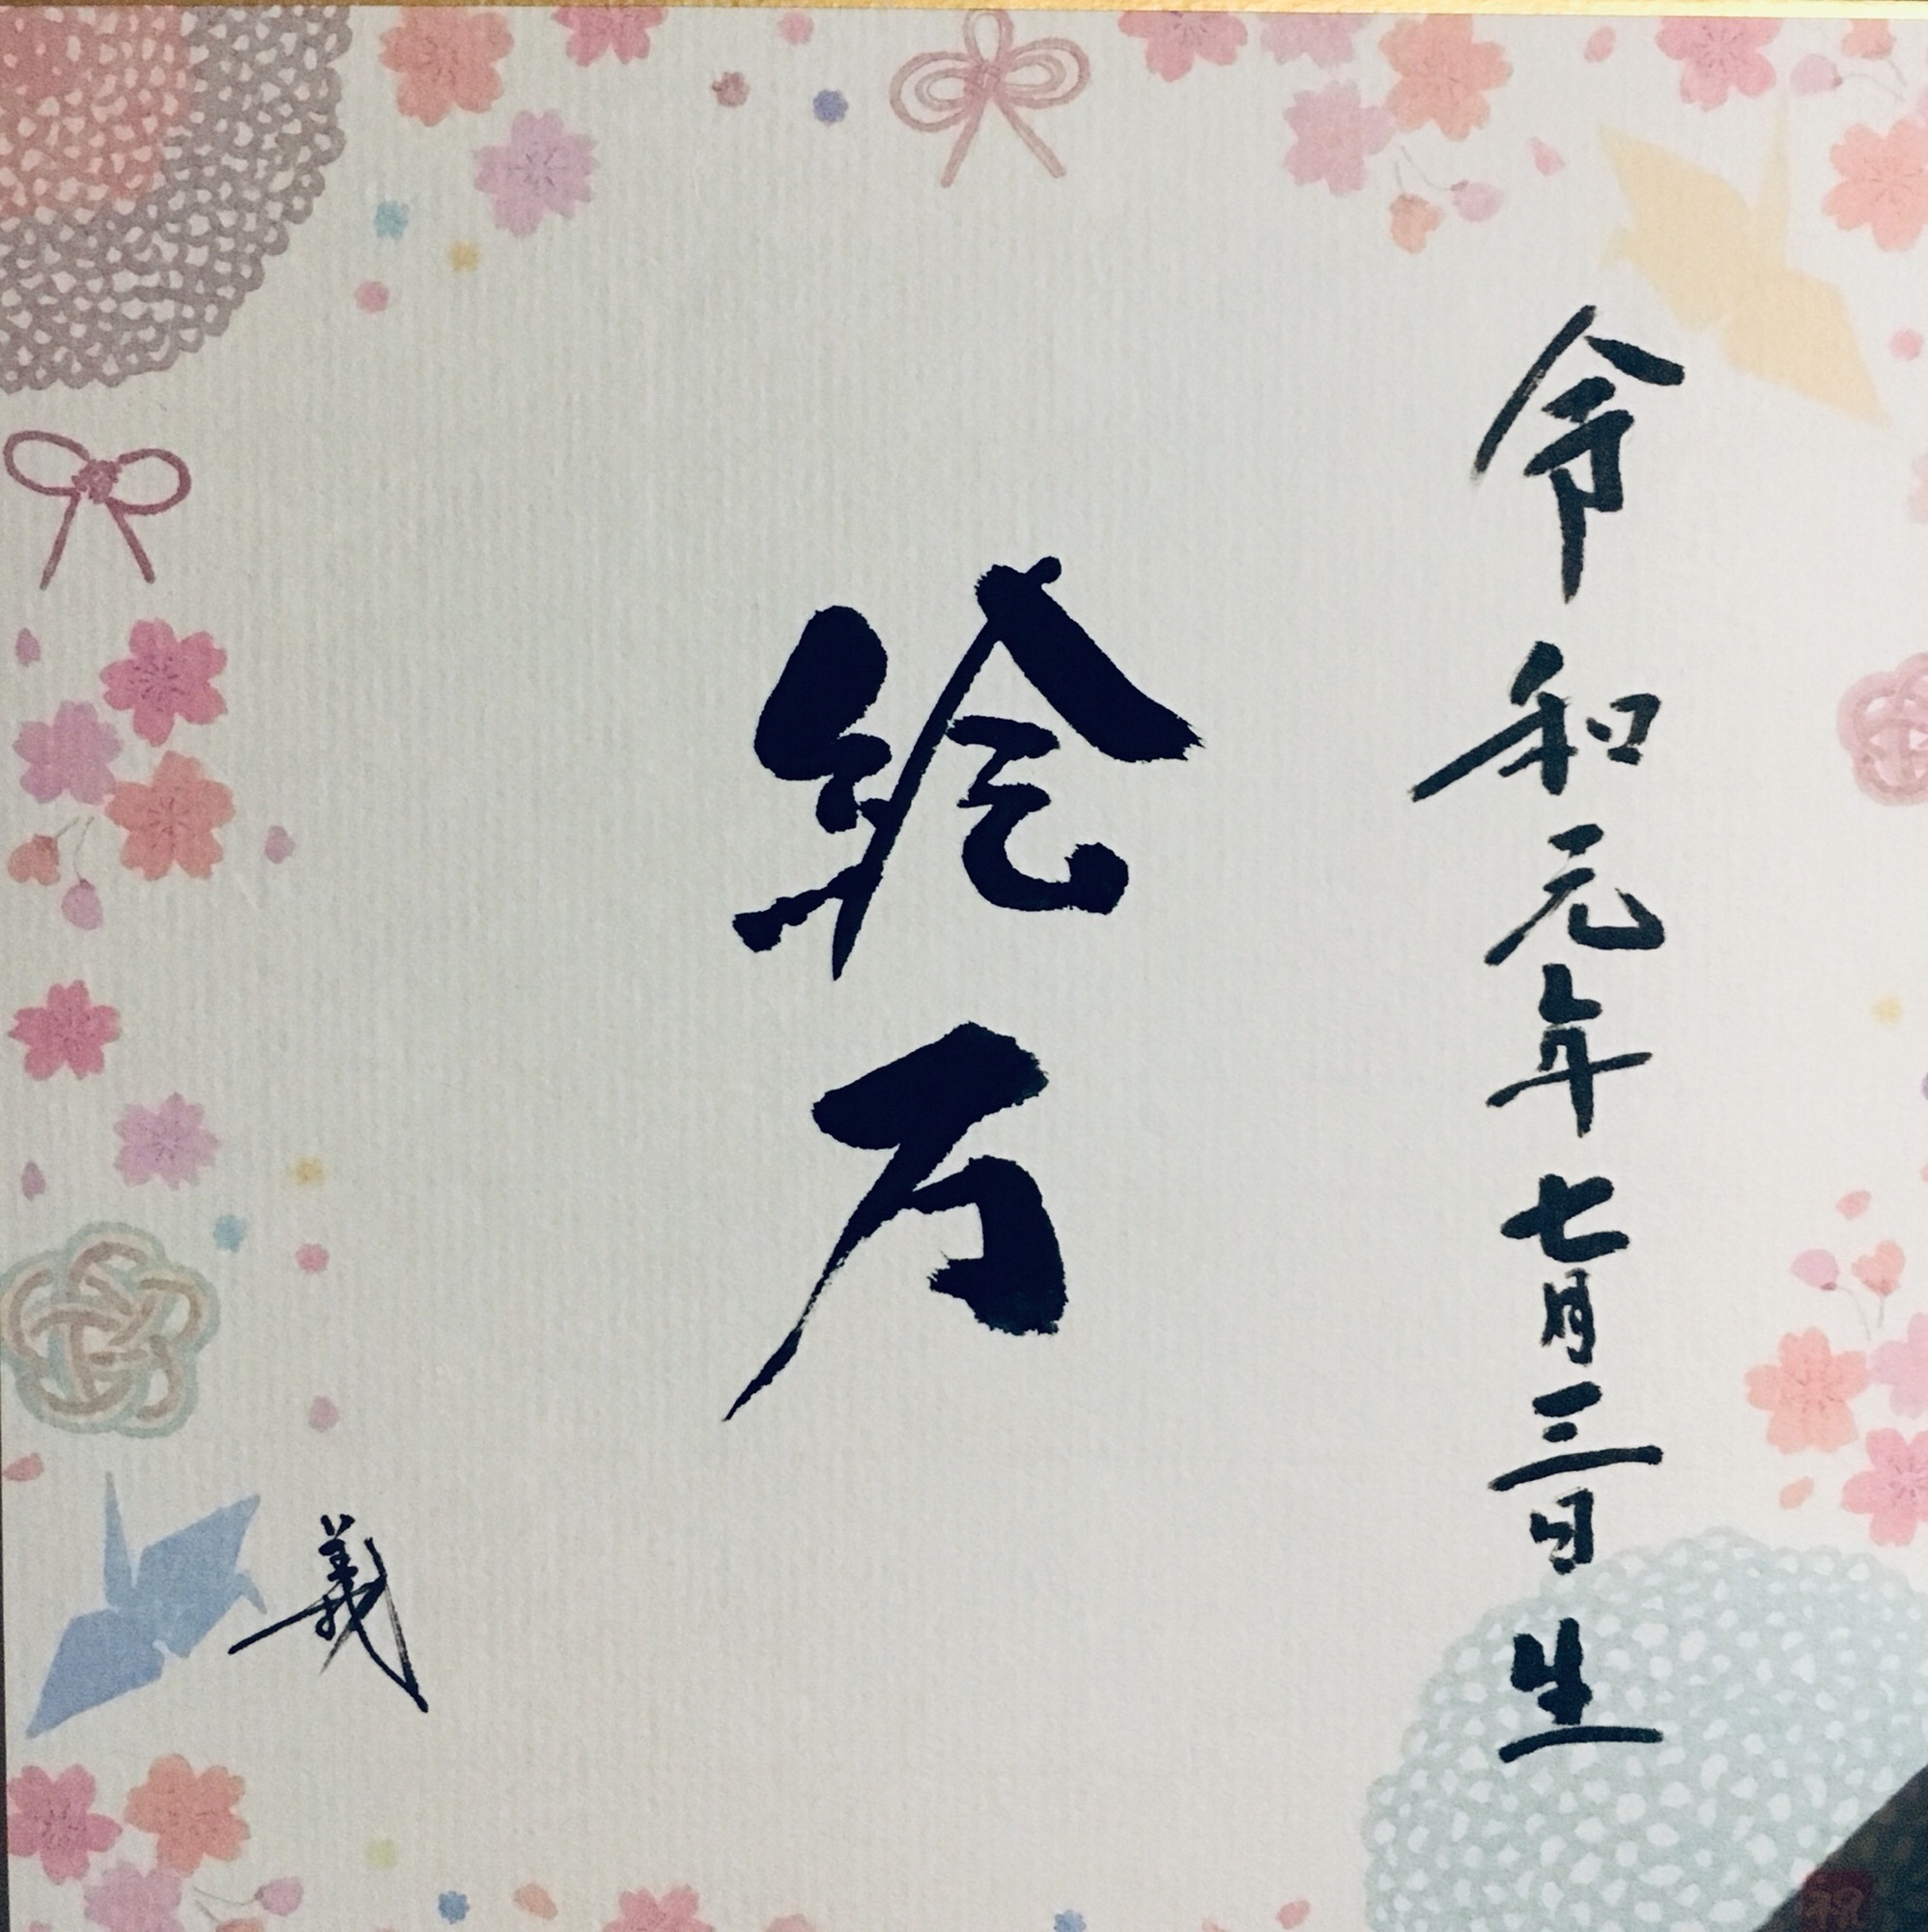 令和元年七月三日生
絵万
義
祝